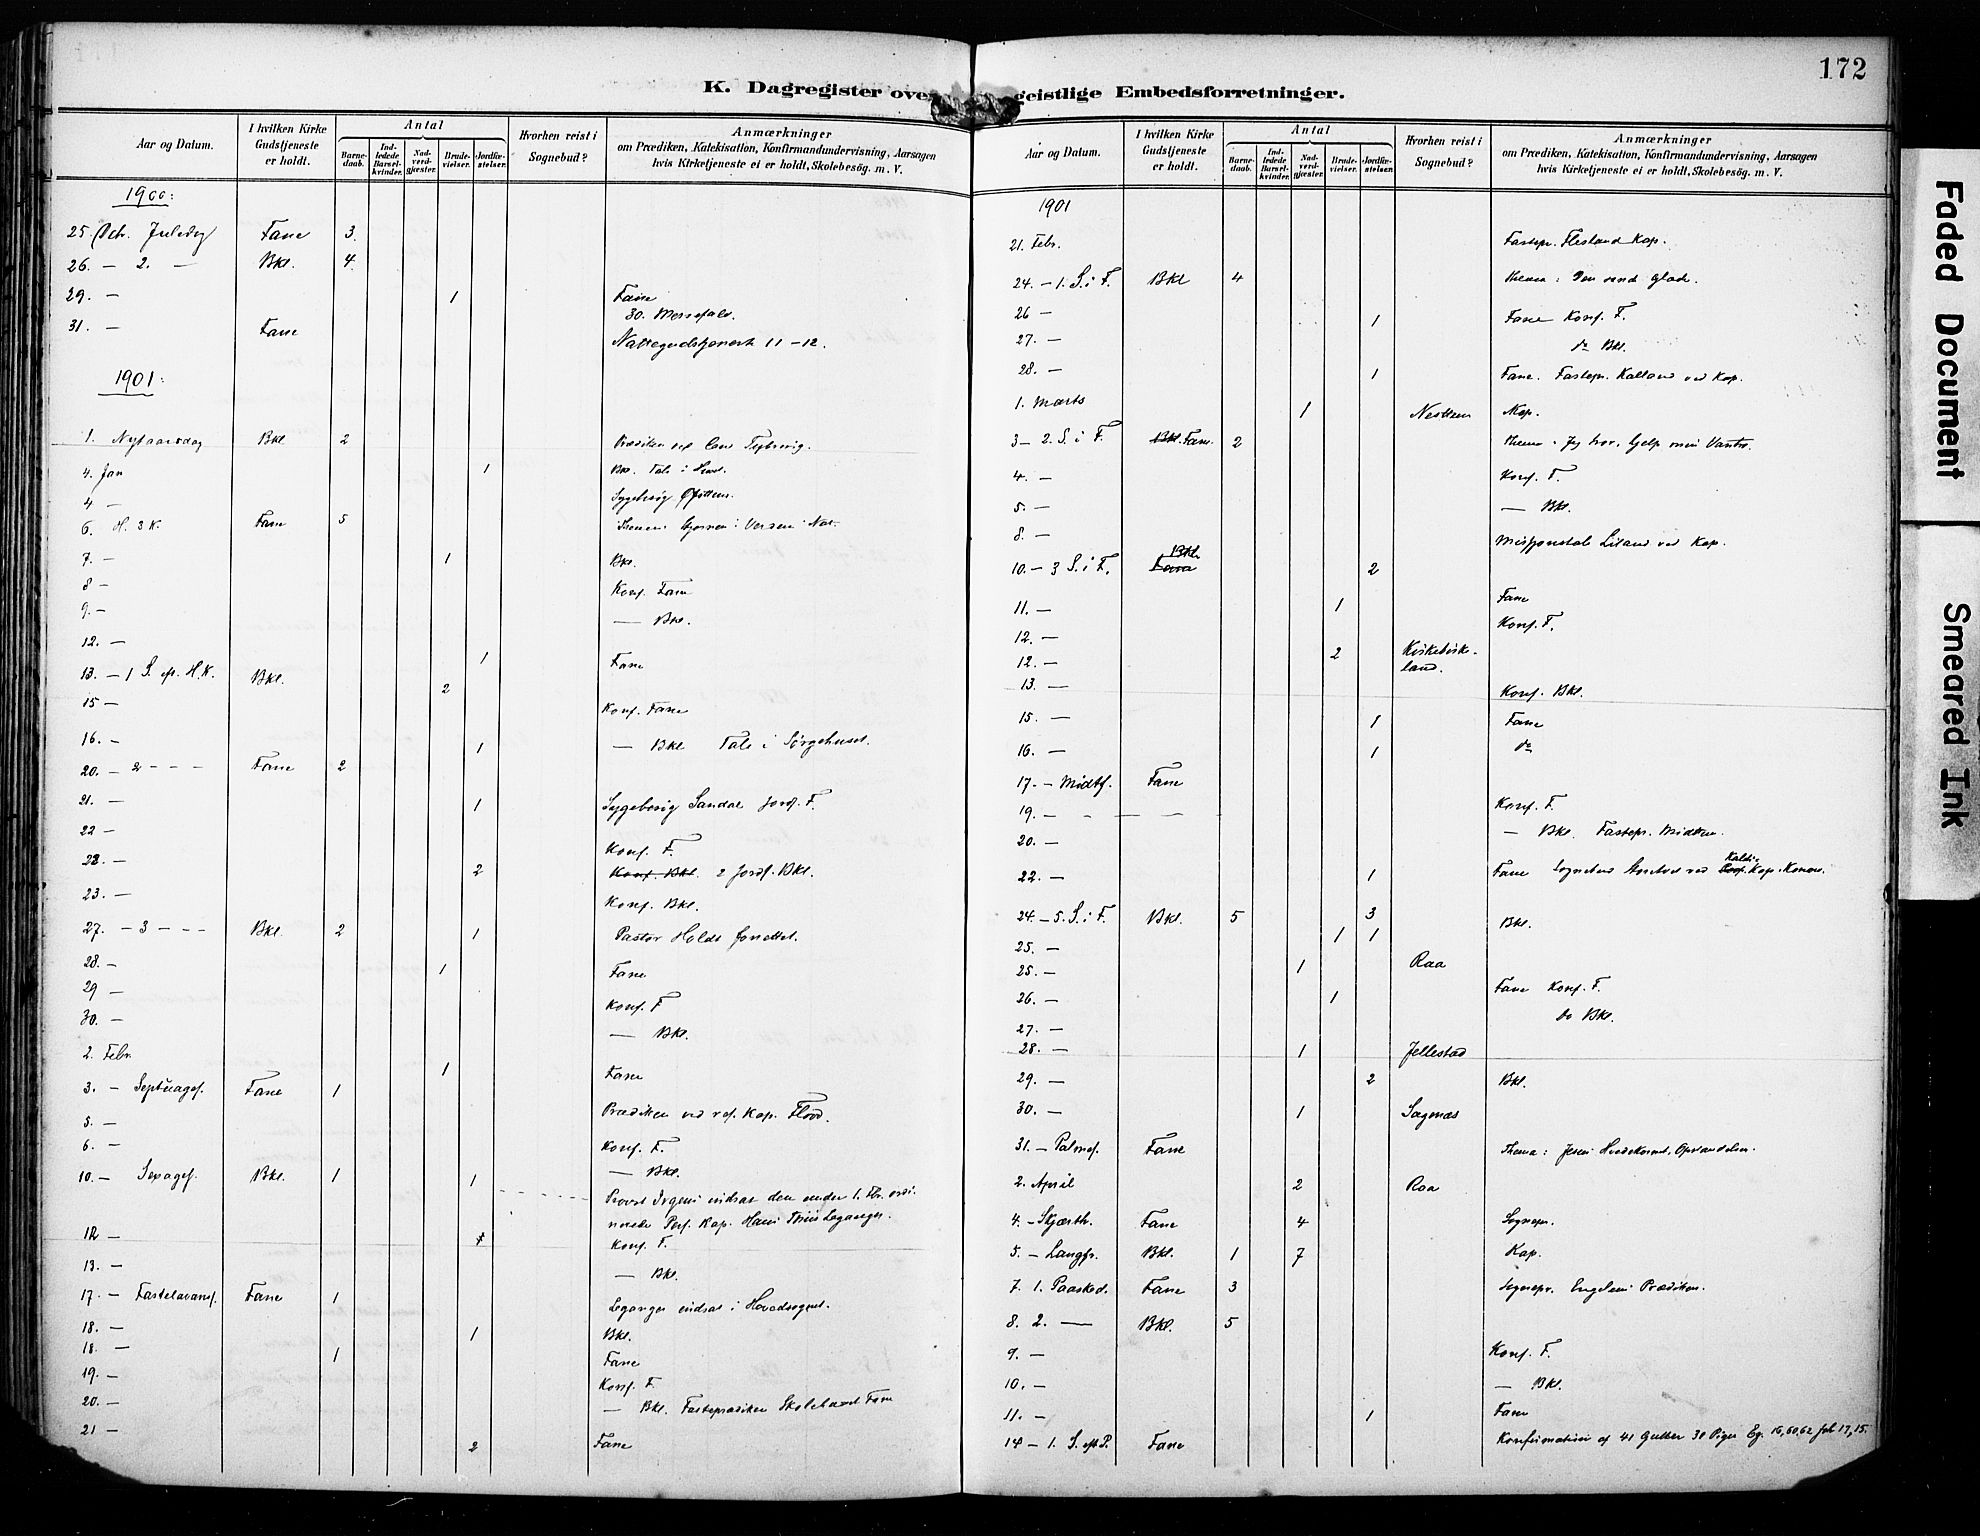 172
K. Dagregister over geistlige Embedsforretninger.
Aar og Datum.
I hvilken Kirke Gudstjeneste er holdt.
Antal
Barnedaab.
Indledede Barselkvinder.
Nadverdgjæster.
Brudevielser.
Jordfæstelser.
Hvorhen reist i Sognebud?
Anmærkninger
om Prædiken, Katekisation, Konfirmandundervisning, Aarsagen
hvis Kirketjeneste ei er holdt, Skolebesög. m. V.
1900:
25. Dcbr. Juledag Fane 3.
26. — 2. — Bkl. 4.
29. — 1 Fane
30. Messefald.
31. — Fane
Nattegudstjeneste 11-12.
1901:
1. Nytaarsdag Bkl. 2 Prædiken ved
4. Jan 1 Bkl. Tale i
4 — Sygebesög
6. H. 3 K. Fane 5
7. — 1 Bkl.
8 — Konf. Fane
9. — — Bkl.
12. — 1 Fane
13. — 1 S. eft. H.K. Bkl. 2
15 — Konf. Fane
16. — 1 — Bkl. Tale i Sørgehuset.
20. — 2 — — — Fane 2
21. — 1 Sygebesög Sandal Jordf. F.
22 — Konf. F.
23. — 2 Konf. Bkl. 2 Jordf. Bkl.
23. — Konf. Bkl.
27. — 3 — — — Bkl. 2 1 Pastor Holdt forrettet.
28. — 1 Fane
29 — Konf. F
30. — — Bkl.
2. Febr. 1 Fane
3. — Septuages. Fane 1
Prædiken ved res. Kap. Flood.
5. —
6. — Konf. F.
— Bkl.
10. — Sexages. Bkl. 1 1
Provst Irgens indsat den under 1. Fbr. ordinerede Pers. Kap. Hans Leganger.
12 — 1 Konf. F.
13. — — Bkl.
17. — Fastelavens. Fane 1 Leganger indsat i Hovedsognet.
18. — 1 Bkl.
18. — 1 Fane
19. — Konf. F
20. — — Bkl. Fasteprædiken Skolehuset Fane
21 — 2 Fane
Aar og Datum.
I hvilken Kirke Gudstjeneste er holdt.
Antal
Barnedaab.
Indledede Barselkvinder.
Nadverdgjæster.
Brudevielser.
Jordfæstelser.
Hvorhen reist i Sognebud?
Anmærkninger
om Prædiken, Katekisation, Konfirmandundervisning, Aarsagen
hvis Kirketjeneste ei er holdt, Skolebesög. m. V.
1901
21. Febr. Fastepr. Flesland Kap.
24. — 1. S. i F. Bkl 4 Thema: Den
26 — 1 Fane Konf. F.
27. — do Bkl.
28. — 1 Fane. Fastepr. Kalland ved Kap.
1. Marts 1 Nesttun Kap.
3 — 2. S. i F. Bkl. Fane. 2 Thema: Jeg tror, hjelp min Vantro.
4. — Konf. F.
5. — — Bkl.
8. — Missjonstale Liland ved Kap.
10. — 3 S. i F. Fane Bkl. 2
11. — 1 Fane
12. — Konf. F.
12. — 2 Kirkebirkeland.
13. — Konf. Bkl.
15. — 1 Fane
16. — 1 do
17. — Midtf. Fane
19. — — — — — Konf. F.
20. — — Bkl. Fastepr. Midttun.
22. — 1 Fane
24. — 5. S. i F. Bkl. 5 3 Bkl.
25. — 1 1
25. — 1 Raa
26. — 1 Fane Konf. F.
27. — do Bkl.
28. — 1 Jellestad
29. — 2 Bkl.
30. — 1
31. — Palmes. Fane Thema: Jesu
2. April 2 Raa
4. — Skjærth. Fane 4 Sognepr.
5. — Langfr. Bkl. 1 7 Kap.
7. 1. Paasked. Fane 3 Sognepr. Engelens Prædiken.
8. 2. — Bkl. 5
9. — Konf. F.
10. — — Bkl.
11. — 1 Fane
14 — 1. S. eft P. Fane Konfirmation af 41 Gutter 38 Piger
Faded Document
Smeared Ink